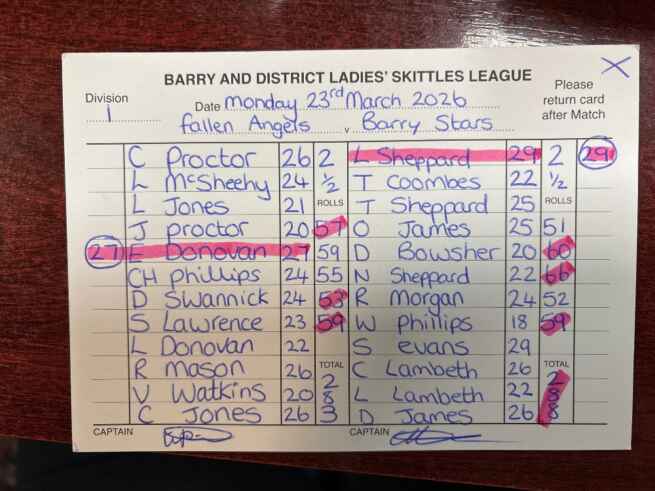 BARRY AND DISTRICT LADIES' SKITTLES LEAGUE
Division
1
Date Monday 23rd March 2026
Please
return card
after Match
X
Fallen Angels v Barry Stars
C Proctor 26 2 L Sheppard 29 2 29
L McSheehy 24 ½ T Coombes 22 ½
L Jones 21 ROLLS T Sheppard 25 ROLLS
J Proctor 20 57 O James 25 51
27 E Donovan 27 59 D Bowsher 20 60
CH Phillips 24 55 N Sheppard 22 66
D Swannick 24 53 R Morgan 24 52
S Lawrence 23 59 W Phillips 18 59
L Donovan 22 S evans 29
R Mason 26 TOTAL 2 C Lambeth 26 TOTAL 2
V Watkins 20 8 L Lambeth 22 8
C Jones 26 3 D James 26 8
CAPTAIN CAPTAIN